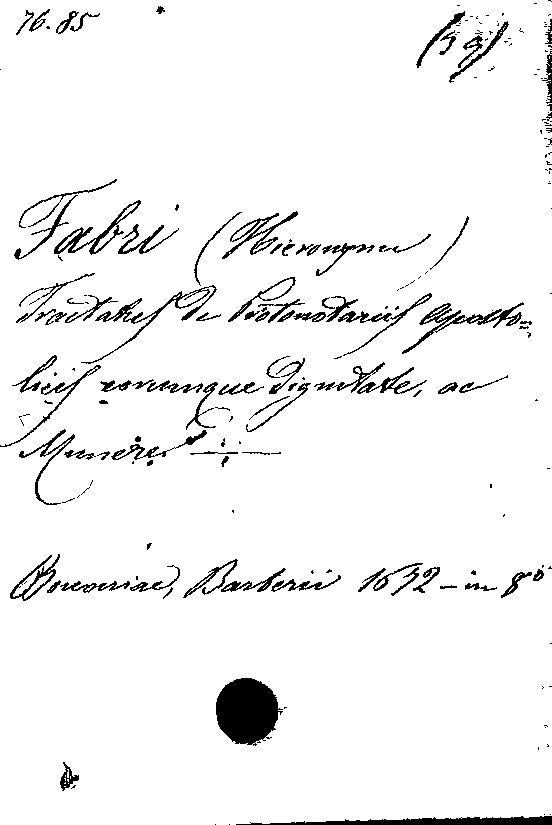 76.85
(3 g)
Fabri (Hieronymu)
Tractatus de Protonotariis Aposto=
licis eorumque dignitate, ac
Munere
Bononiae, Barberii 1672 - in 8°